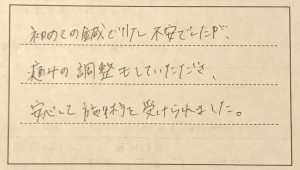 初めての鍼で少し不安でしたが、
痛みの調整もしていただき、
安心して施術を受けられました。